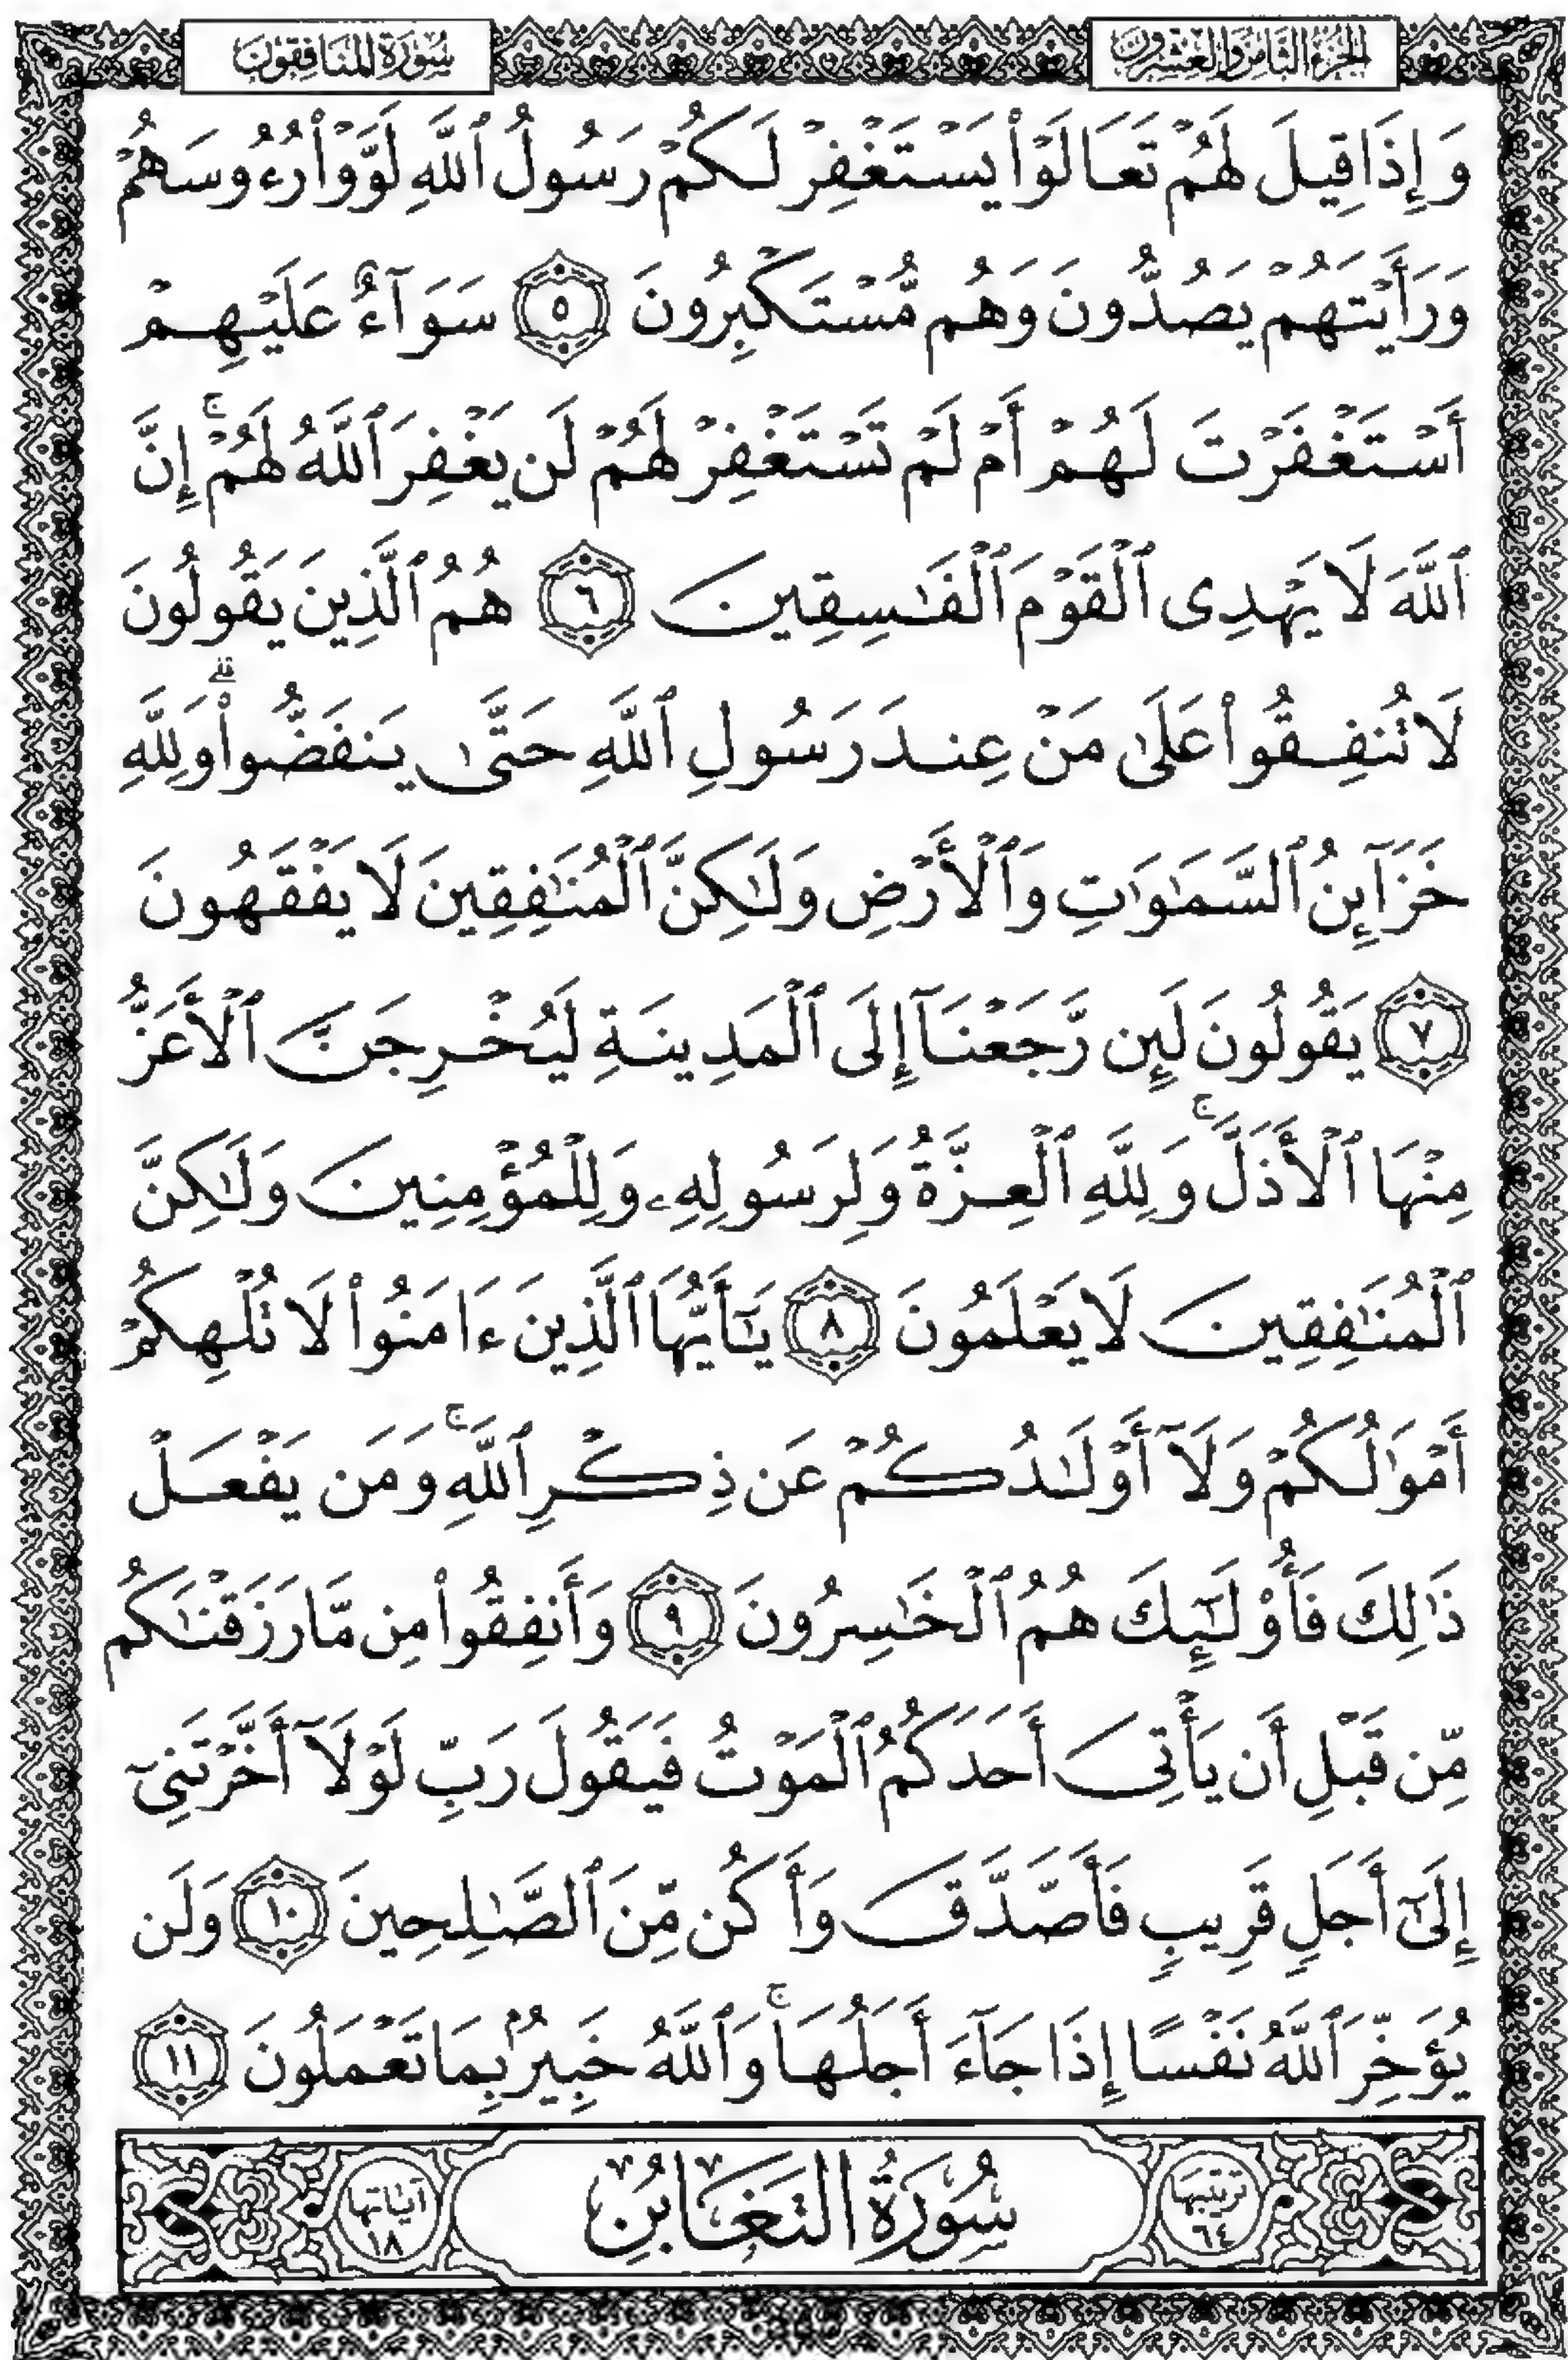 الجزء الثامن والعشرون
سورة المنافقون
وَإِذَا قِيلَ لَهُمْ تَعَالَوْا۟ يَسْتَغْفِرْ لَكُمْ رَسُولُ ٱللَّهِ لَوَّوْا۟ رُءُوسَهُمْ
وَرَأَيْتَهُمْ يَصُدُّونَ وَهُم مُّسْتَكْبِرُونَ ٥ سَوَآءٌ عَلَيْهِمْ
أَسْتَغْفَرْتَ لَهُمْ أَمْ لَمْ تَسْتَغْفِرْ لَهُمْ لَن يَغْفِرَ ٱللَّهُ لَهُمْ ۚ إِنَّ
ٱللَّهَ لَا يَهْدِى ٱلْقَوْمَ ٱلْفَـٰسِقِينَ ٦ هُمُ ٱلَّذِينَ يَقُولُونَ
لَا تُنفِقُوا۟ عَلَىٰ مَنْ عِندَ رَسُولِ ٱللَّهِ حَتَّىٰ يَنفَضُّوا۟ ۗ وَلِلَّهِ
خَزَآئِنُ ٱلسَّمَـٰوَٰتِ وَٱلْأَرْضِ وَلَـٰكِنَّ ٱلْمُنَـٰفِقِينَ لَا يَفْقَهُونَ
٧ يَقُولُونَ لَئِن رَّجَعْنَآ إِلَى ٱلْمَدِينَةِ لَيُخْرِجَنَّ ٱلْأَعَزُّ
مِنْهَا ٱلْأَذَلَّ ۚ وَلِلَّهِ ٱلْعِزَّةُ وَلِرَسُولِهِۦ وَلِلْمُؤْمِنِينَ وَلَـٰكِنَّ
ٱلْمُنَـٰفِقِينَ لَا يَعْلَمُونَ ٨ يَـٰٓأَيُّهَا ٱلَّذِينَ ءَامَنُوا۟ لَا تُلْهِكُمْ
أَمْوَٰلُكُمْ وَلَآ أَوْلَـٰدُكُمْ عَن ذِكْرِ ٱللَّهِ ۚ وَمَن يَفْعَلْ
ذَٰلِكَ فَأُو۟لَـٰٓئِكَ هُمُ ٱلْخَـٰسِرُونَ ٩ وَأَنفِقُوا۟ مِن مَّا رَزَقْنَـٰكُم
مِّن قَبْلِ أَن يَأْتِىَ أَحَدَكُمُ ٱلْمَوْتُ فَيَقُولَ رَبِّ لَوْلَآ أَخَّرْتَنِىٓ
إِلَىٰٓ أَجَلٍ قَرِيبٍ فَأَصَّدَّقَ وَأَكُن مِّنَ ٱلصَّـٰلِحِينَ ١٠ وَلَن
يُؤَخِّرَ ٱللَّهُ نَفْسًا إِذَا جَآءَ أَجَلُهَا ۚ وَٱللَّهُ خَبِيرٌۢ بِمَا تَعْمَلُونَ ١١
ترتيبها ٦٤
سُورَةُ التَّغَابُنِ
آياتها ١٨